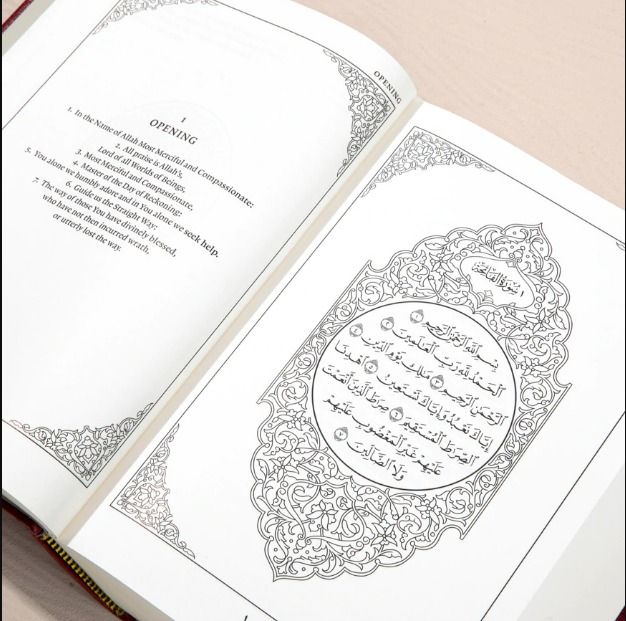 OPENING
1
OPENING
1. In the Name of Allah Most Merciful and Compassionate:
2. All praise is Allah's,
Lord of all Worlds of Beings,
3. Most Merciful and Compassionate,
4. Master of the Day of Reckoning:
5. You alone we humbly adore and in You alone we seek help.
6. Guide us the Straight Way:
7. The way of those You have divinely blessed,
who have not then incurred wrath,
or utterly lost the way.
١ سورة الفاتحة
بسم الله الرحمن الرحيم ١
الحمد لله رب العالمين ٢
الرحمن الرحيم ٣ مالك يوم الدين ٤
إياك نعبد وإياك نستعين ٥ اهدنا
الصراط المستقيم ٦ صراط الذين أنعمت
عليهم غير المغضوب عليهم
ولا الضالين ٧
1